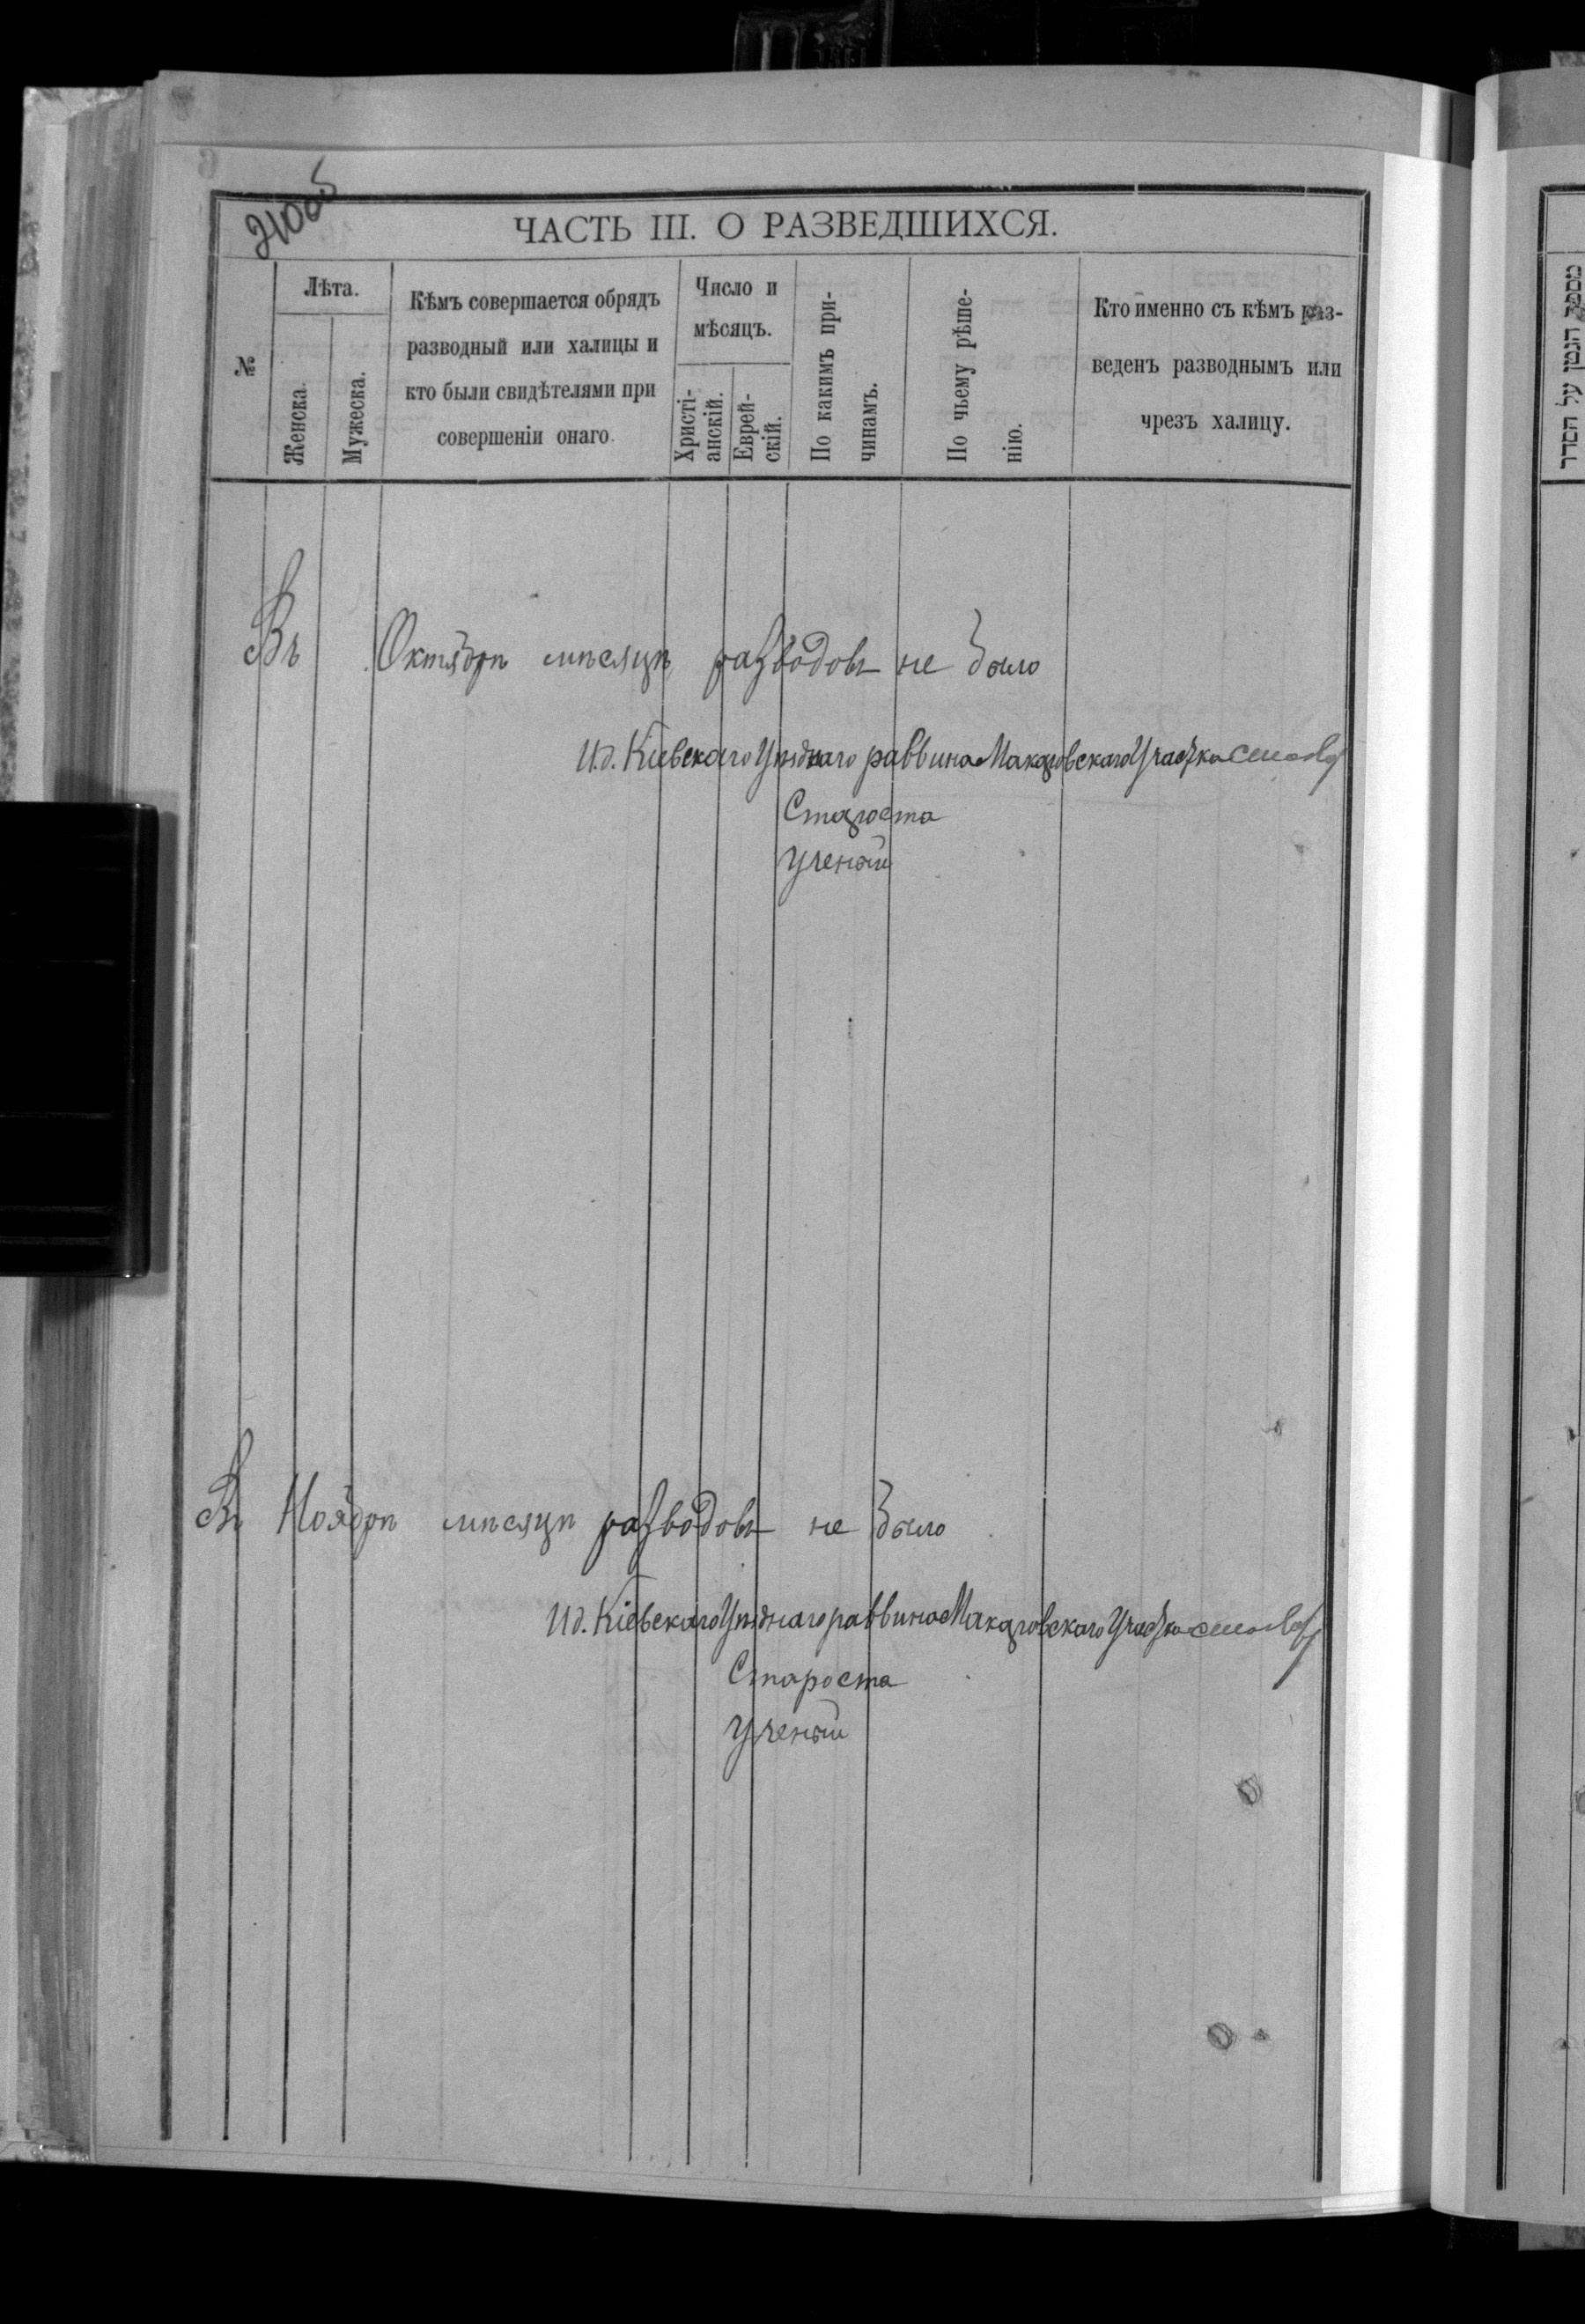 210об
ЧАСТЬ III. О РАЗВЕДШИХСЯ.
№
Лѣта.
Женска
Мужеска.
Кѣмъ совершается обрядъ
разводный или халицы и
кто были свидѣтелями при
совершеніи онаго.
Число и
мѣсяцъ.
Христі-
анскій.
Еврей-
скій.
По какимъ при-
чинамъ.
По чьему рѣше-
нію.
Кто именно съ кѣмъ раз-
веденъ разводнымъ или
чрезъ халицу.
Въ Октябрѣ мѣсяцѣ разводовъ не было
И.д. Кіевскаго Уѣзднаго раввина Макаровскаго Участка
Староста
Ученый
Въ Ноябрѣ мѣсяцѣ разводовъ не было
И.д. Кіевскаго Уѣзднаго раввина Макаровскаго Участка
Староста
Ученый
מספר הגטן על הסדר